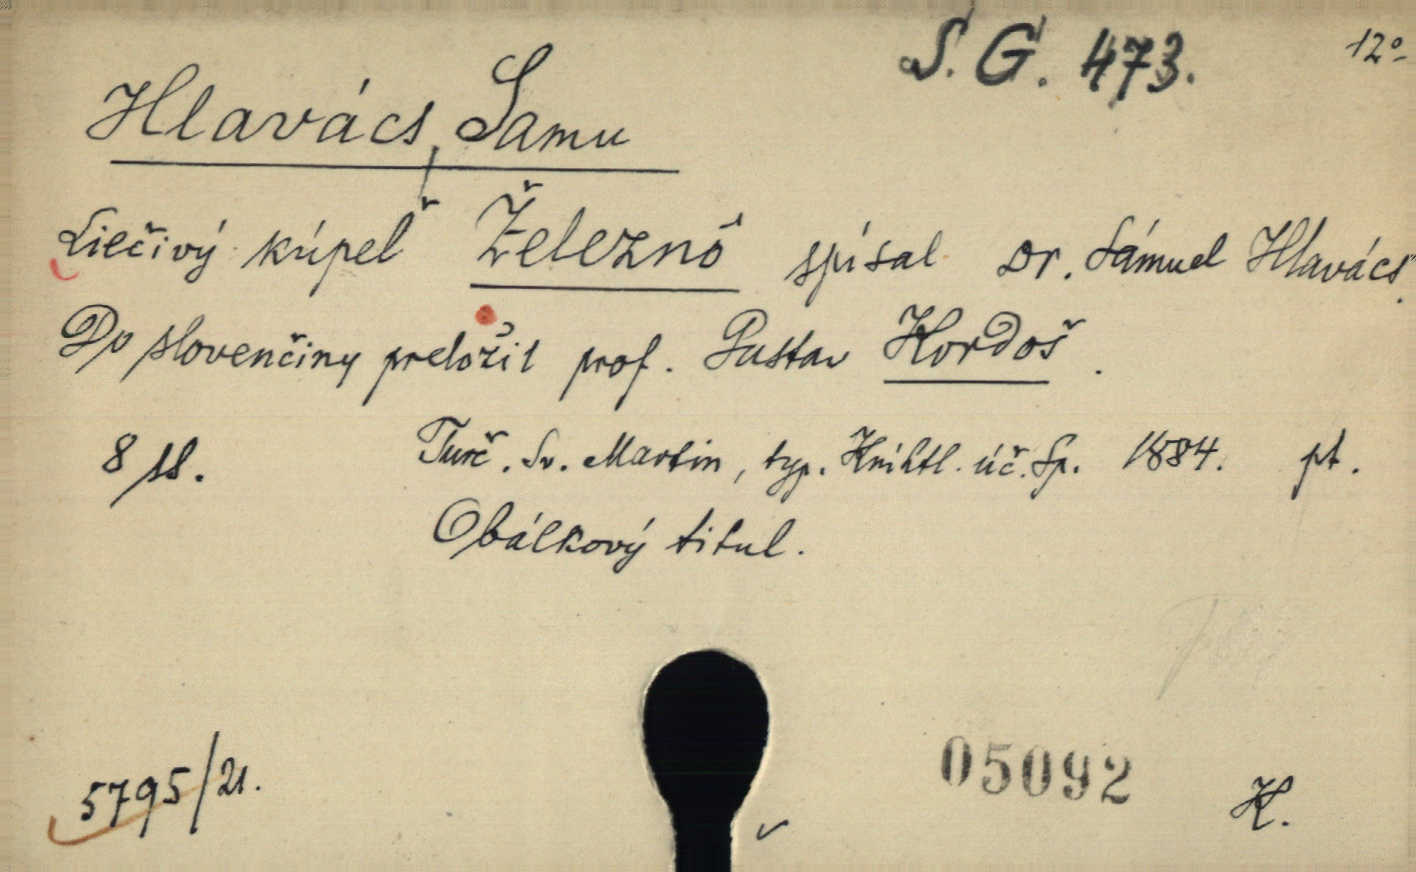 S. G. 473.
12°
Hlavács, Samu
Liečivý kúpeľ Železnô spísal Dr. Sámuel Hlavács.
Do slovenčiny preložil prof. Gustav Hordoš.
8 ss. Turč. Sv. Martin, typ. Knihtl. úč. Sp. 1884. pt.
Obálkový titul.
5795/21.
05092
H.